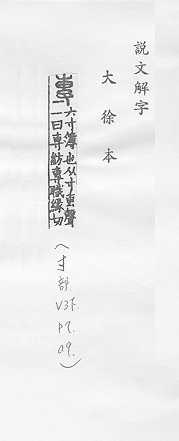 説文解字
大徐本
專 六寸簿也从寸叀聲
一曰專紡專職緣切
(寸部 V3下. P7. 09.)